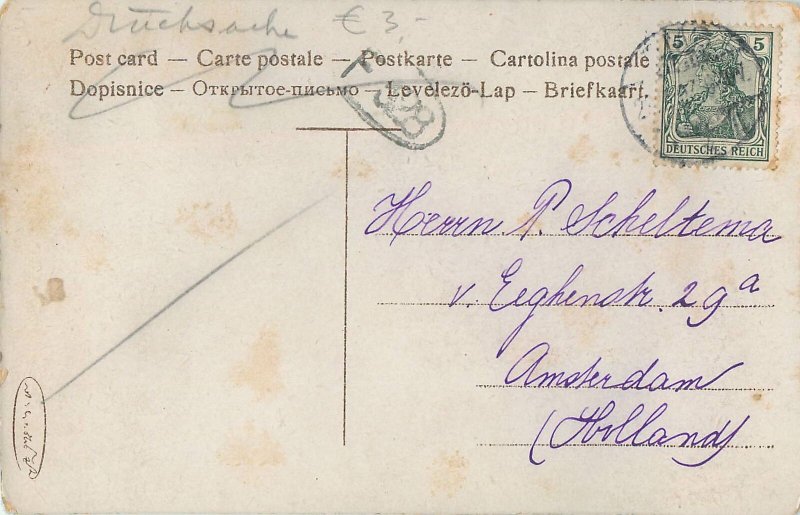 Drucksache € 3,-
Post card — Carte postale — Postkarte — Cartolina postale
Dopisnice — Открытое-письмо — Levelezö-Lap — Briefkaart.
5 5
DEUTSCHES REICH
Herrn P. Scheltema
v. Eeghenstr. 29a
Amsterdam
(Holland)